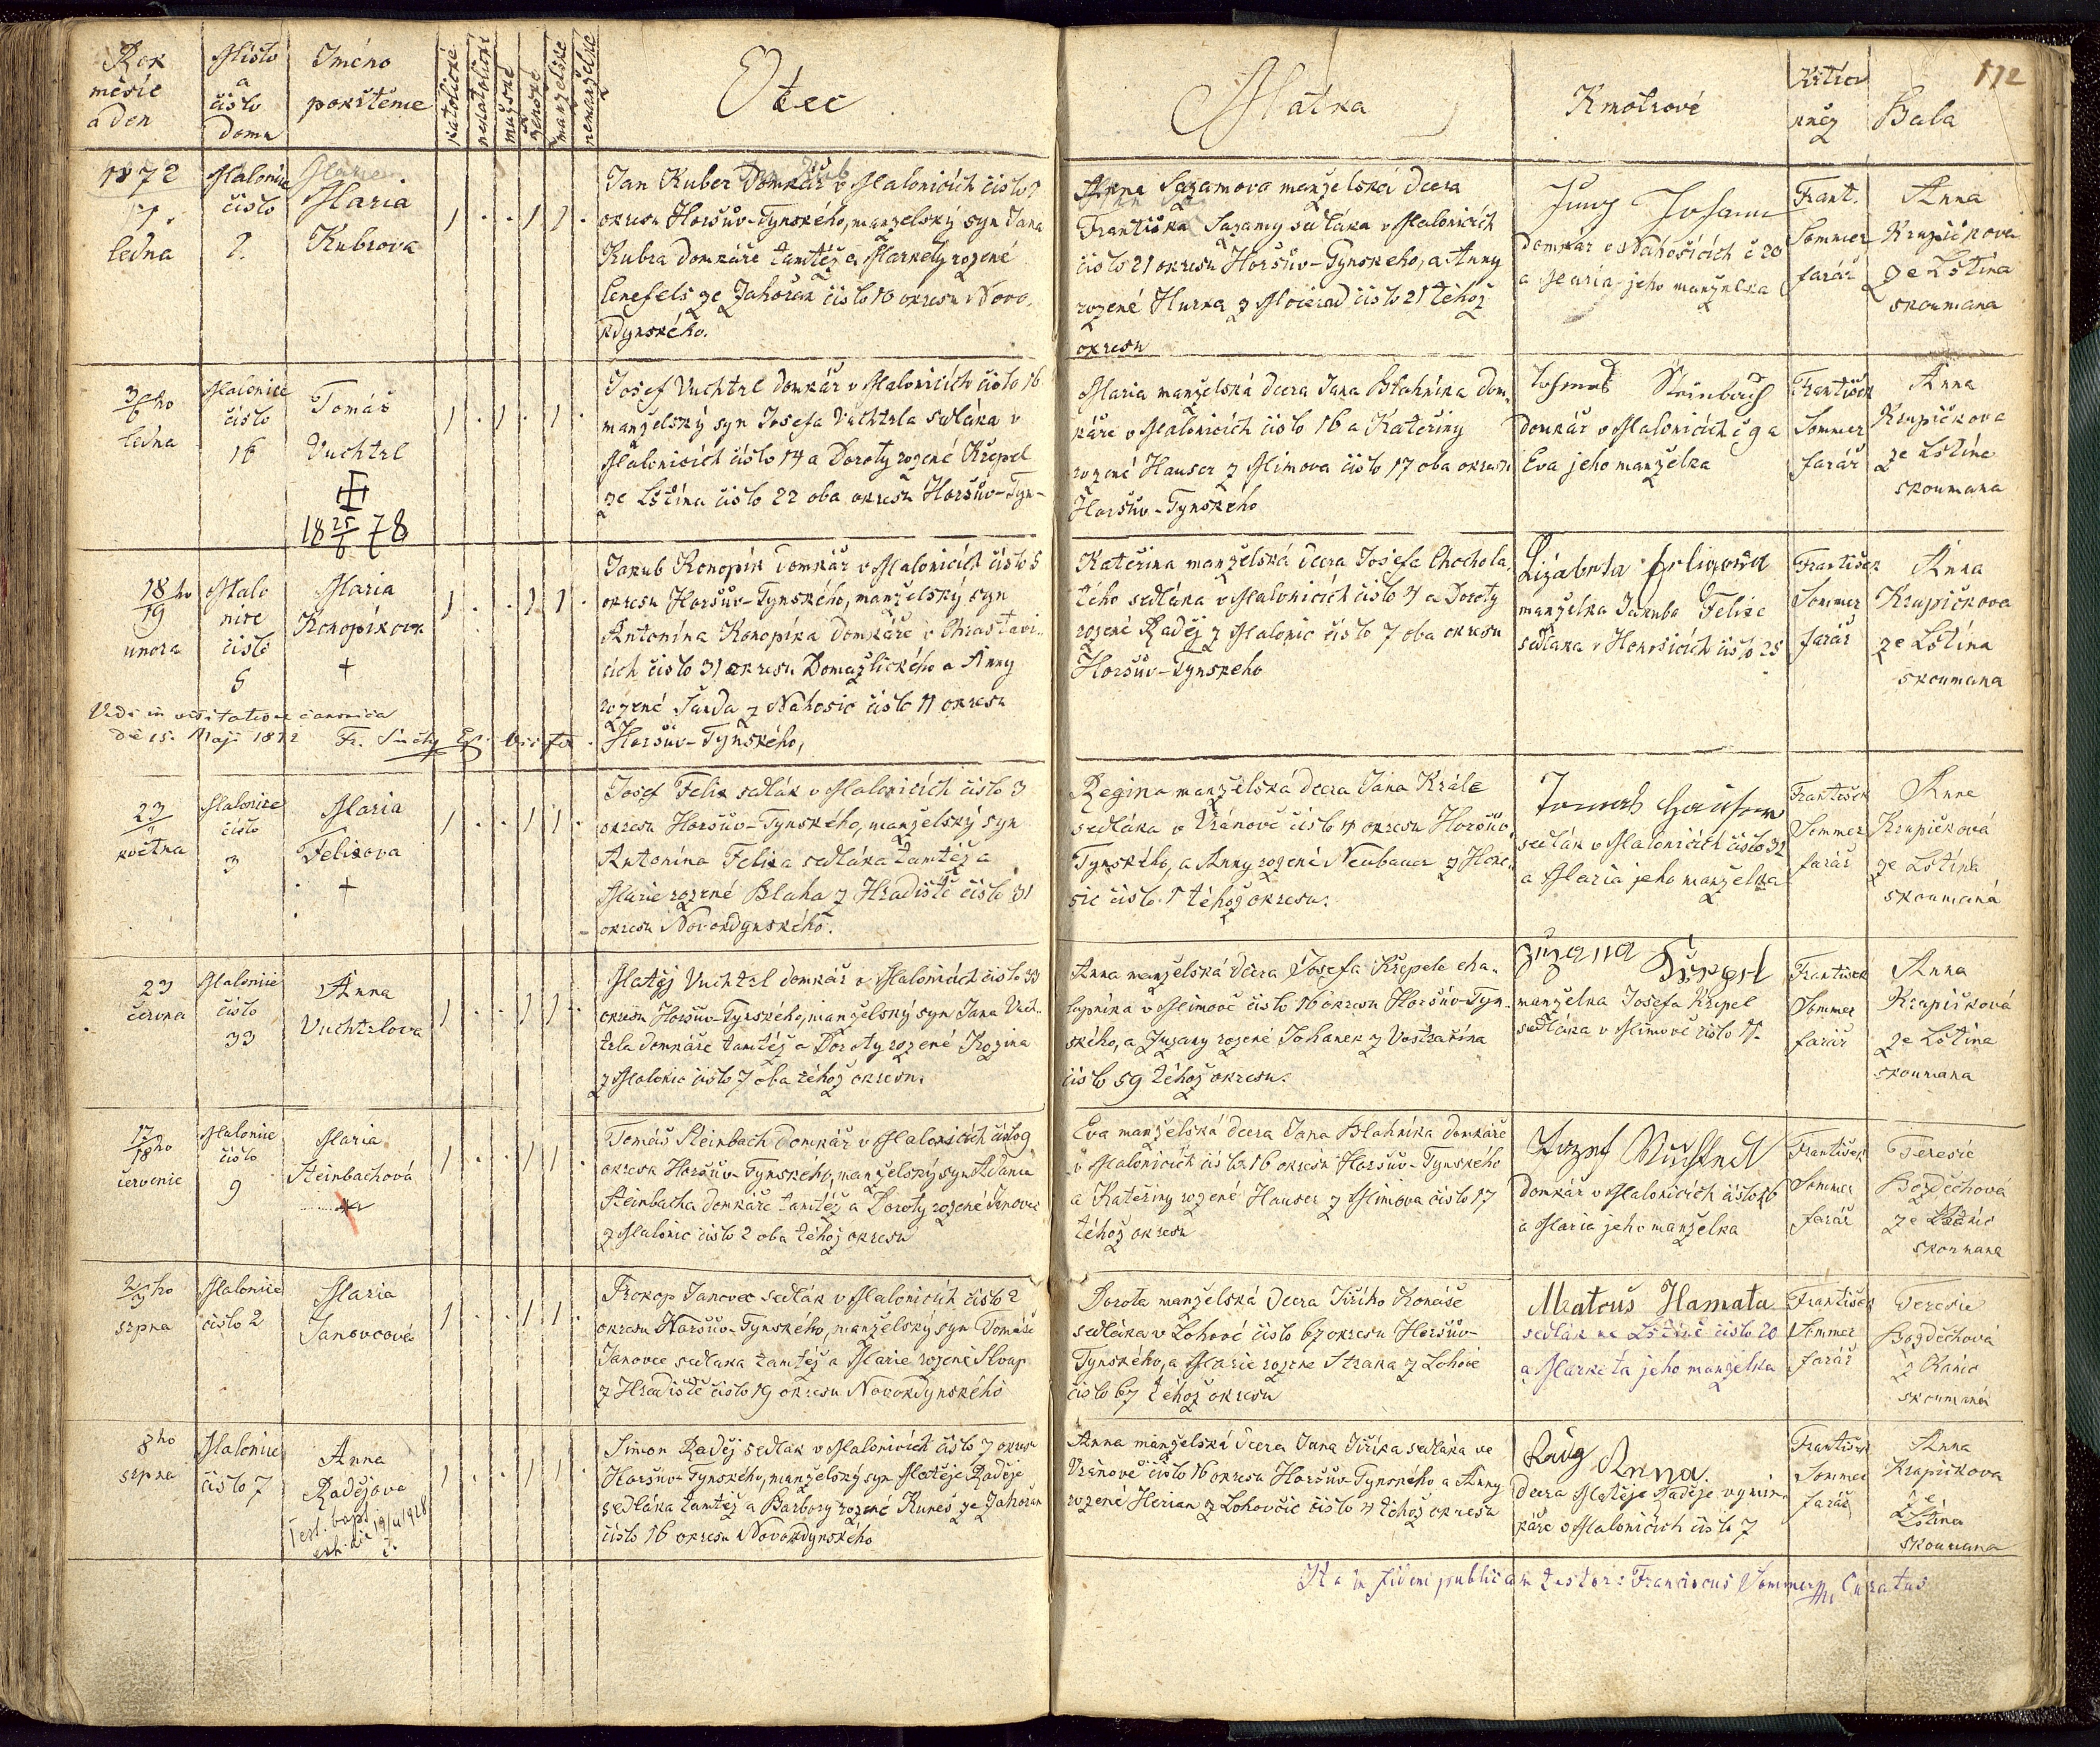 172
Rok
měsíc
a den
Místo
a
číslo
domu
Jméno
pokřtěnce
katolické
nekatolické
mužské
ženské
manželské
nemanželské
Otec
Matka
Kmotrové
Křtící
kněz
Baba
1872
17.
ledna
Malonice
číslo
2.
Maria
Kubrova
Jan Kuber Domkář v Malonicích číslo 2
okresu Horšův-Tynského, manželský syn Jana
Kubra domkáře tamtéž a Markety rozené
Cenefels ze Zahořan číslo 10 okresu Novo
kdynského.
Anna Sazamova manželská dcera
Františka Sazamy sedláka v Malonicích
číslo 21 okresu Horšův-Tynského, a Anny
rozené Hurka z Močerad číslo 21 téhož
okresu
Jung Johann
domkár v Nahošicích č 20
a Maria jeho manželka
Frant.
Sommer
farář
Anna
Krupičkova
ze Lštína
skoumana
3/6 ho
ledna
Malonice
číslo
16
Tomáš
Vuchtrl
18 25/6 78
Josef Vuchtrl domkář v Malonicích číslo 16
manželský syn Josefa Vuchtrla sedláka v
Malonicích číslo 14 a Doroty rozené Křepel
ze Lštína číslo 22 oba okresu Horšův-Tyn-
Maria manželská dcera Jana Blahníka dom-
káře v Malonicích číslo 16 a Kateřiny
rozené Hauser z Mlimova číslo 17 oba okresu
Horšův-Tynského
Tohmas Steinbach
domkář v Malonicích č 9 a
Eva jeho manželka
František
Sommer
farář
Anna
Krupičkova
ze Lštína
skoumana
18/19 ho
unora
Malo
nice
číslo
5
Maria
Konopíkova
+
Jakub Konopík domkář v Malonicích číslo 5
okresu Horšův-Tynského, manželský syn
Antonína Konopíka domkáře v Chrastavi-
cích číslo 31 okresu Domažlického a Anny
rozené Šarda z Nahosic číslo 11 okresu
Horšův-Tynského,
Kateřina manželská dcera Josefa Chochola
tého sedláka v Malonicích číslo 4 a Doroty
rozené Raděj z Malonic číslo 7 oba okresu
Horšův-Tynského
manželka Jakuba Felixe
sedláka v Honosicích číslo 25
František
Sommer
farář
Anna
Krupičkova
ze Lštína
skoumana
Vidi in visitatione canonica
de 15. Maji 1872
23/
května
Malonice
číslo
3
Maria
Felixova
+
Josef Felix sedlák v Malonicích číslo 3
okresu Horšův-Tynského, manželský syn
Antonína Felixa sedláka tamtéž a
Marie rozené Blaha z Hradiště číslo 31
okresu Novokdynského.
Regina manželská dcera Jana Krále
sedláka v Vránově číslo 4 okresu Horšův
Tynského, a Anny rozené Neubauer z Hono-
sic číslo 1 téhož okresu.
sedlák v Malonicích číslo 32
a Maria jeho manželka
František
Sommer
farář
Anna
Krupičková
ze Lštína
skoumaná
23
června
Malonice
číslo
33
Anna
Vuchtrlova
Matěj Vuchtrl domkář v Malonicích číslo 33
okresu Horšův-Tynského, manželský syn Jana Vuch-
trla domkáře tamtéž a Doroty rozené Kozina
z Malonic číslo 7 oba téhož okresu.
Anna manželská dcera Josefa Křepele cha-
lupníka v Mlimově číslo 16 okresu Horšův-Tyn-
ského, a Zuzany rozené Johanek z Vostračína
číslo 59 téhož okresu.
manželka Josefa Křepel
sedláka v Mlimově číslo 11.
František
Sommer
farář
Anna
Krupičková
ze Lštína
skoumana
17/18 ho
července
Malonice
číslo
9
Maria
Steinbachová
Tomáš Steinbach domkář v Malonicích číslo 9
okresu Horšův-Tynského, manželský syn Adama
Steinbacha domkáře tamtéž a Doroty rozené Janovec
z Malonic číslo 2 oba téhož okresu
Eva manželská dcera Jana Blahníka domkáře
v Malonicích číslo 16 okresu Horšův-Tynského
a Kateřiny rozené Hauser z Mlimova číslo 17
téhož okresu
domkář v Malonicích číslo 16
a Maria jeho manželka
František
Sommer
farář
Teresie
Bozděchová
skoumana
2/3 ho
srpna
Malonice
číslo 2
Maria
Janovcová
Prokop Janovec sedlák v Malonicích číslo 2
okresu Horšův-Tynského, manželský syn Tomáše
Janovce sedlaka tamtéž a Marie rozené Sloup
z Hradiště číslo 19 okresu Novokdynského
Dorota manželská dcera Jiřího Konáše
sedláka v Lohově číslo 67 okresu Horšův-
Tynského, a Marie rozené Straka z Lohově
číslo 67 téhož okresu
Matouš Hamata
sedlák ve Lštíně číslo 20
a Marketa jeho manželka
František
Sommer
farář
Teresie
Bozděchová
z Kanic
skoumaná
8ho
srpna
Malonice
číslo 7
Anna
Radějova
Test. bapt.
exh. die 19/4 1928
Šimon Raděj sedlák v Malonicích číslo 7 okresu
Horšův-Tynského, manželský syn Matěje Raděje
sedláka tamtéž a Barbory rozené Kuneš ze Zahořan
číslo 16 okresu Novokdynského
Anna manželská dcera Jana Jiříka sedláka ve
Vránově číslo 16 okresu Horšův-Tynského a Anny
rozené Herian z Lohovčic číslo 4 téhož okresu
Anna.
dcera Matěje Raděje vymin-
káře v Malonicích číslo 7
František
Sommer
farář
Anna
Krupičkova
ze
Lštína
skoumana
Ita in fidem publicam testor: Franciscus Sommer Curatus